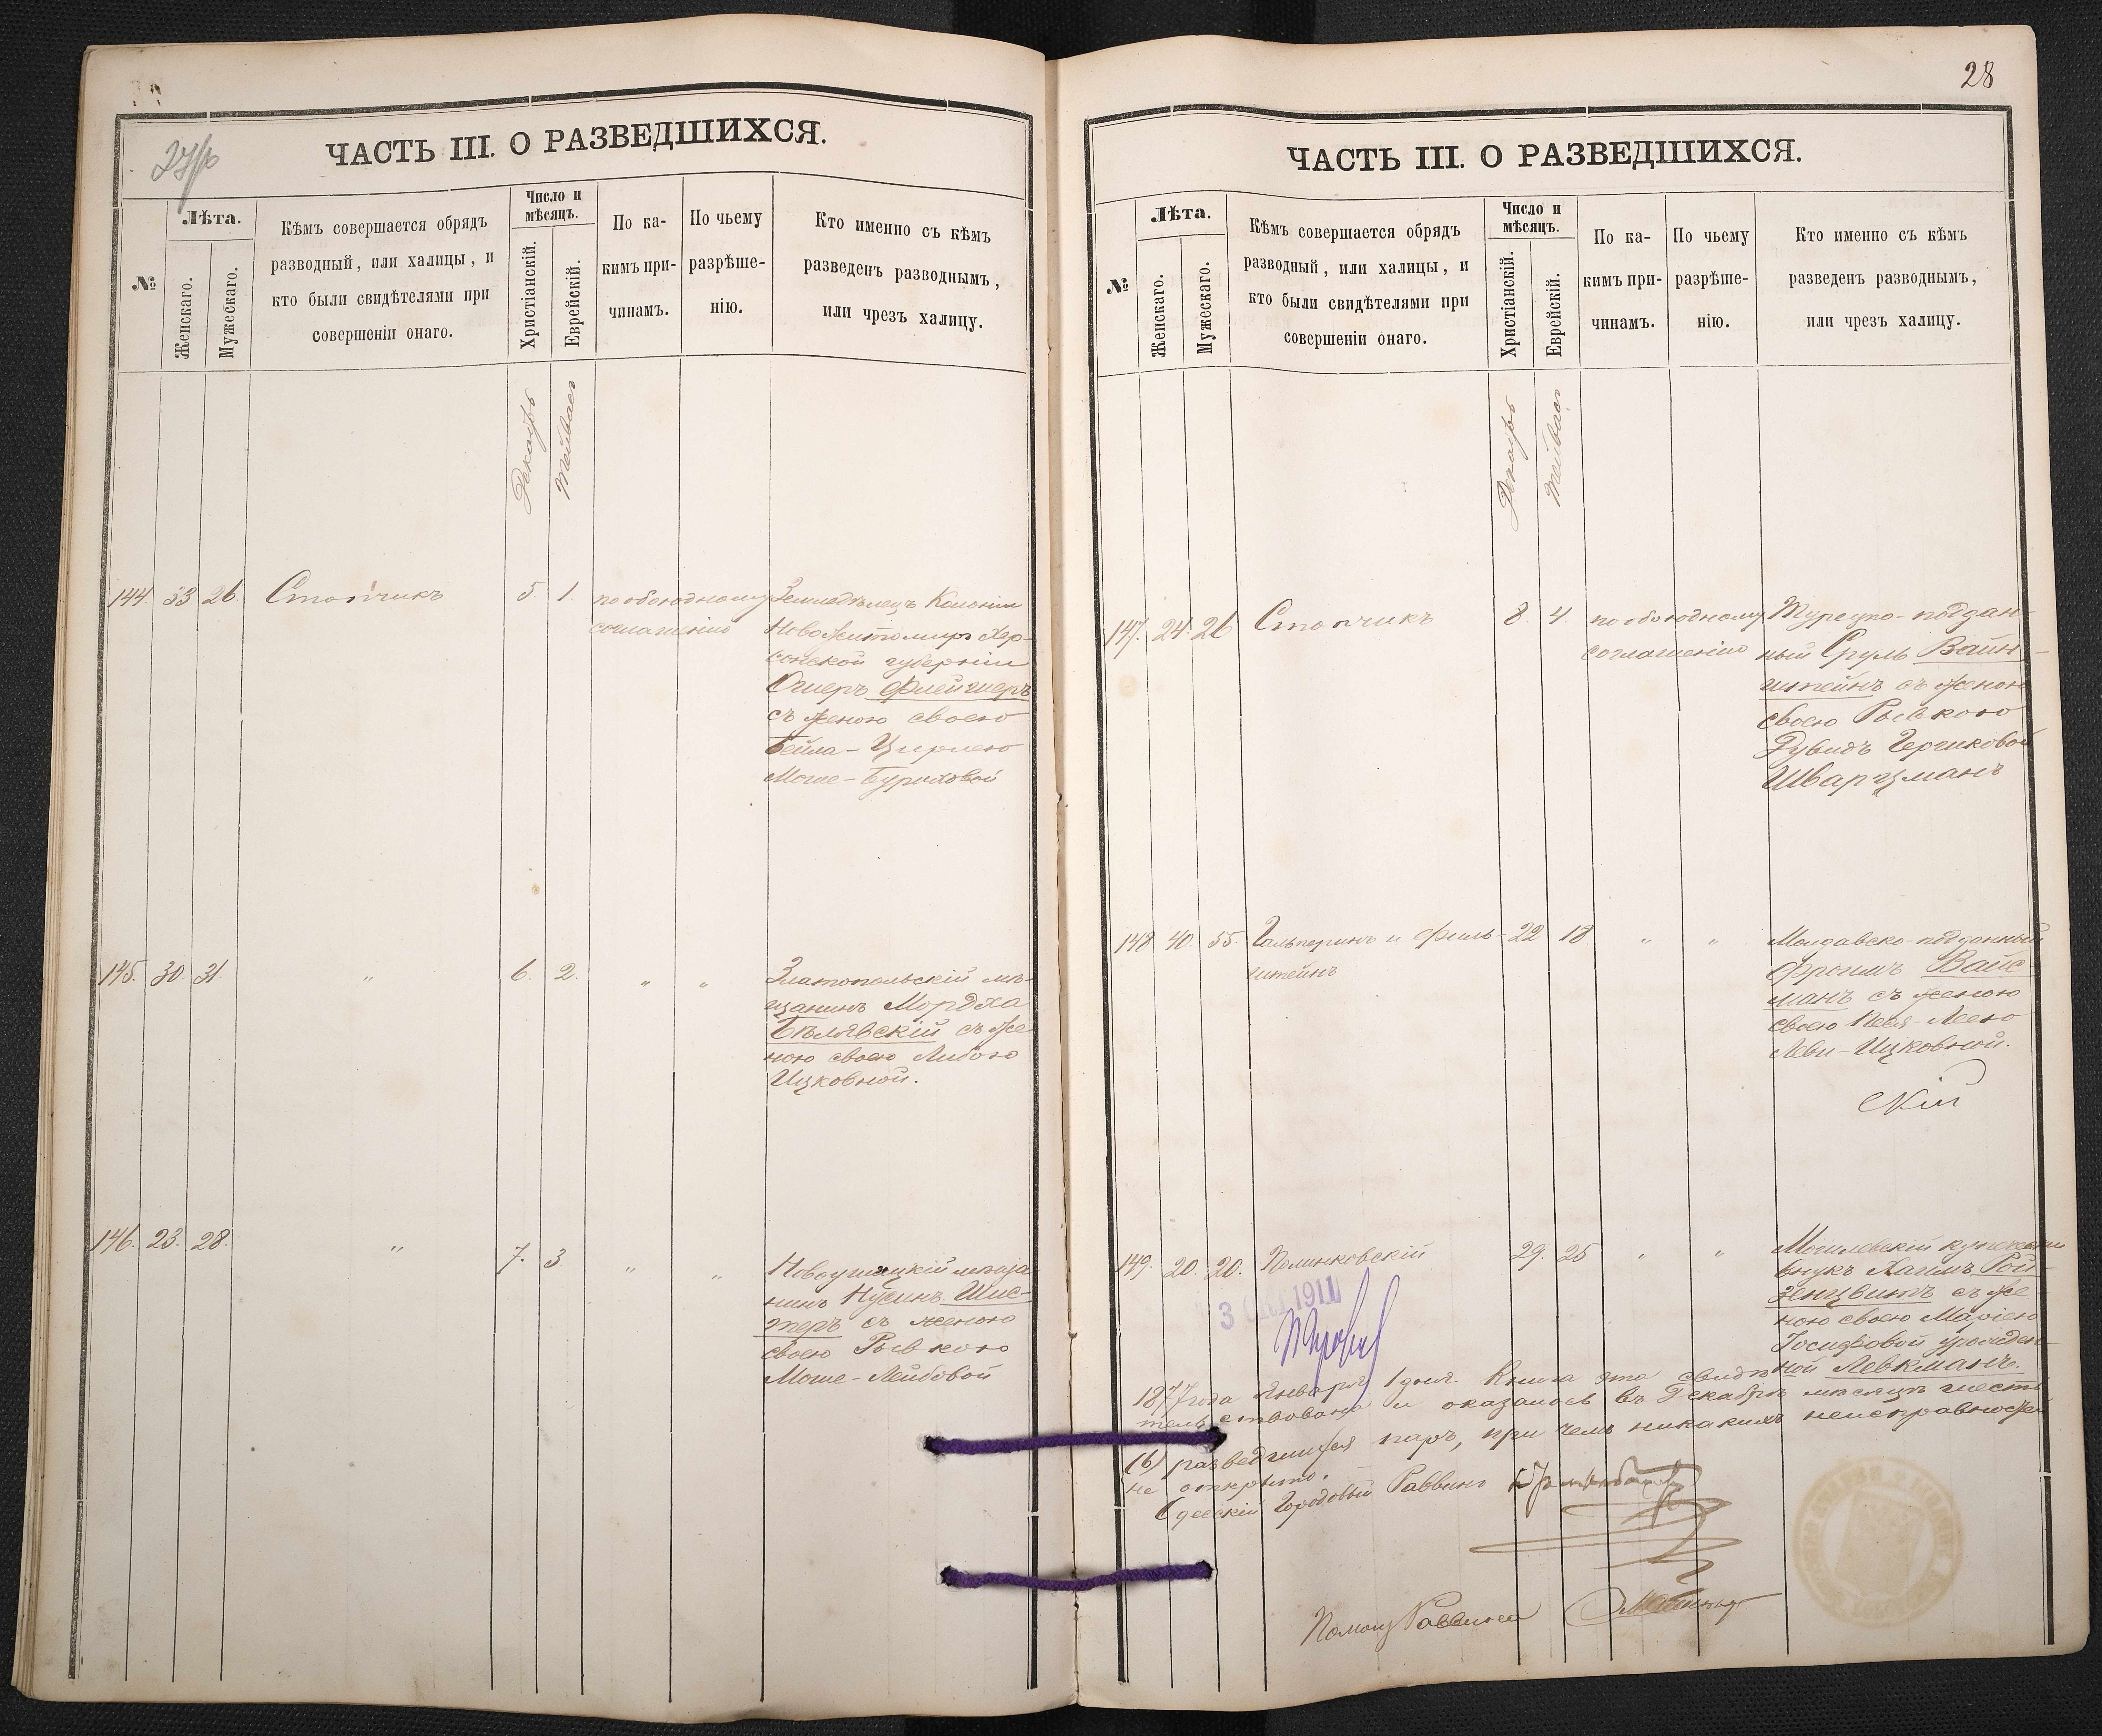 ЧАСТЬ III. О РАЗВЕДШИХСЯ.
№
Лѣта.
Женскаго.
Мужескаго.
Кѣмъ совершается обрядъ
разводный, или халицы, и
кто были свидѣтелями при
совершеніи онаго.
Число и
мѣсяцъ.
Христіанскій.
Еврейскій.
По ка-
кимъ при-
чинамъ.
По чьему
разрѣше-
нію.
Кто именно съ кѣмъ
разведенъ разводнымъ,
или чрезъ халицу.
Декабрь
Тейвасъ
144. 33 26. Столчикъ 5. 1. по обоюдному
соглашенію
Земледѣлецъ Колоніи
Ново Житомиръ Хер-
сонской губерніи
Ошеръ Флейшеръ
съ женою своею
Бейла-Цирлею
Моше-Буриховой
145. 30. 31. " 6. 2. " "
Златопольскій мѣ-
щанинъ Мордха
Бѣлявскій съ же
ною своею Либою
Ицковной.
146. 23. 28. " 7. 3 " "
Новоушицкій мѣща
нинъ Нусинъ Шис-
теръ съ женою
своею Рывкою
Моше-Лейбовой
28
ЧАСТЬ III. О РАЗВЕДШИХСЯ.
№
Лѣта.
Женскаго.
Мужескаго.
Кѣмъ совершается обрядъ
разводный, или халицы, и
кто были свидѣтелями при
совершеніи онаго.
Число и
мѣсяцъ.
Христіанскій.
Еврейскій.
По ка-
кимъ при-
чинамъ.
По чьему
разрѣше-
нію.
Кто именно съ кѣмъ
разведенъ разводнымъ,
или чрезъ халицу.
Декабрь
Тейвасъ
147. 24. 26 Столчикъ 8. 4 по обоюдному
соглашенію
Турецко-поддан-
ный Сруль Вайн-
штейнъ съ женою
своею Рывкою
Дувидъ Гершковой
Шварцманъ
148 40. 55. Гальперинъ и Филь-
штейнъ
22 18 " "
Молдавско-подданный
Фроимъ Вайс-
манъ съ женою
своею Песя-Леею
Леви-Ицковной.
скій
149. 20. 20. Полинковскій 29. 25 " "
Могилевскій купеческій
внукъ Хаимъ Рой-
зенцвитъ съ же
ною своею Маріею
Іосифовой урожден-
ной Левкманъ.
3 ОКТ 1911
1877 года Января 1 дня. Книга эта свидѣ
тельствована и оказалось въ Декабрѣ мѣсяцѣ шесть
(6) разведшихся паръ, при чемъ никакихъ неисправностей
не открыто.
Одесскій Городовый Раввинъ
Помощ Раввина